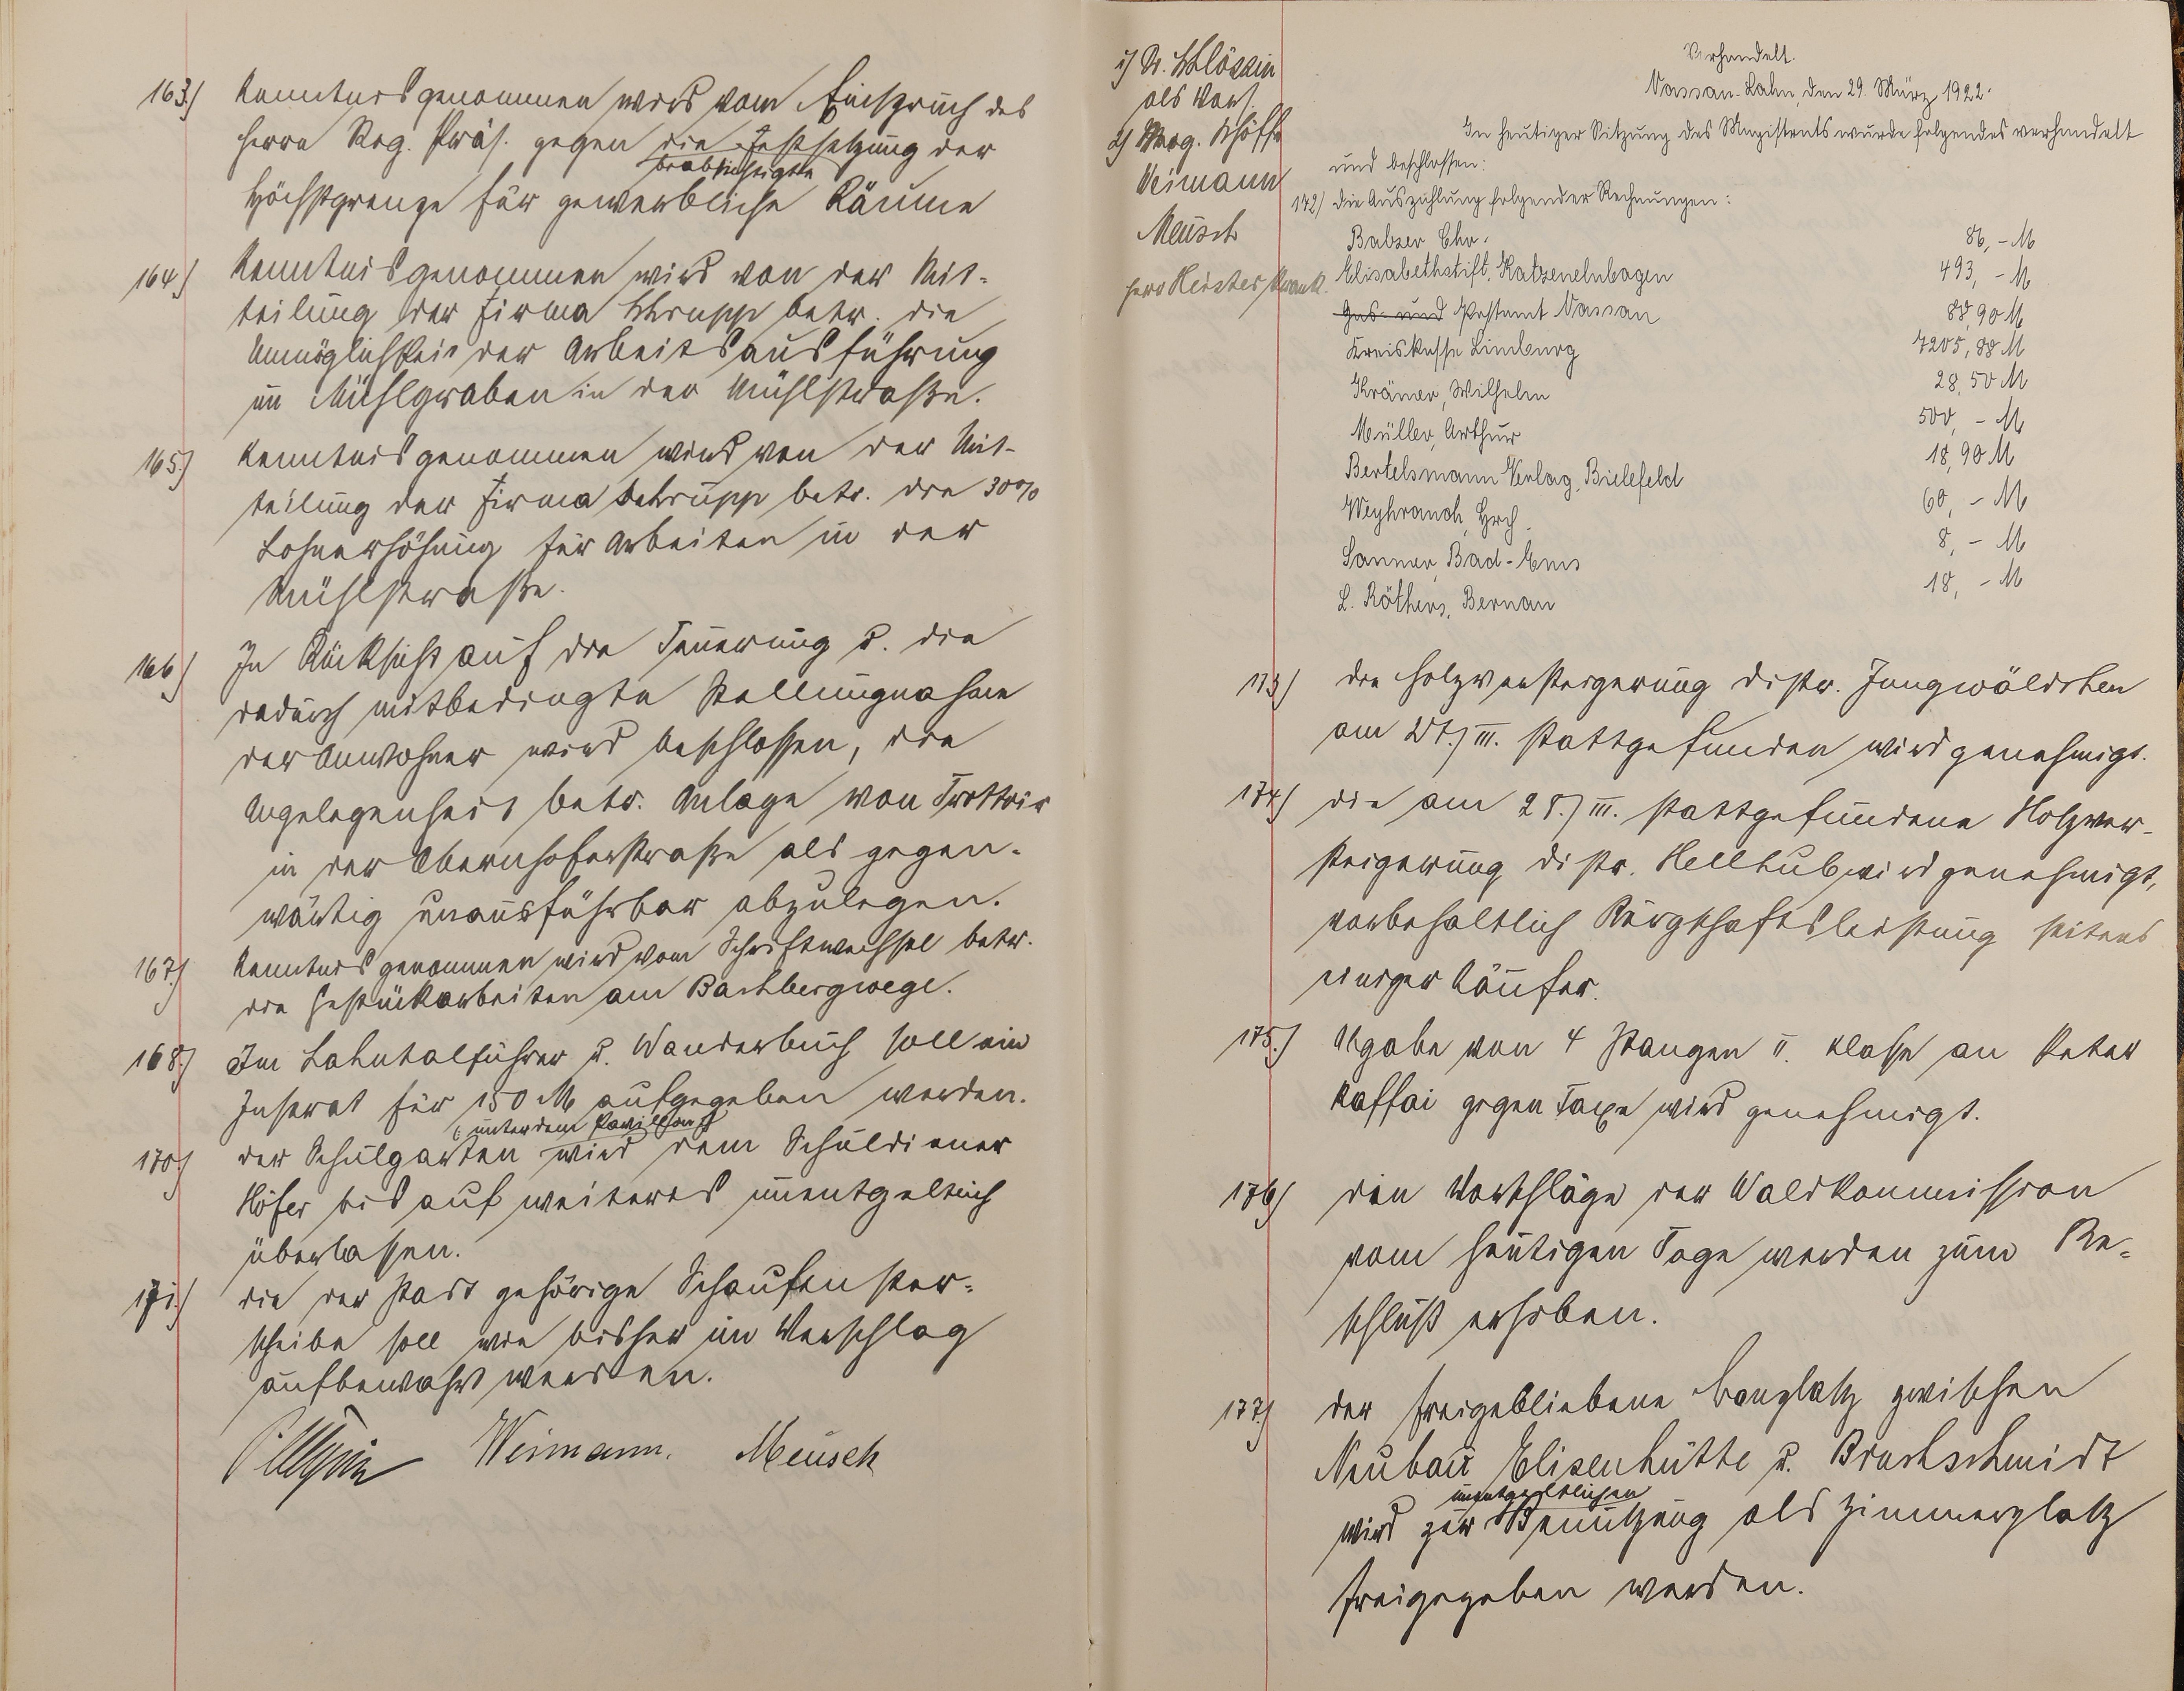 163.) Kenntnis genommen wird vom Einspruch des
Herrn Reg. Präs. gegen die Festsetzung der
beabsichtigte
Höchstgrenze für gewerbliche Räume
164.) Kenntnis genommen wird von der Mit-
teilung der Firma Schrupp betr. die
Unmöglichkeit der Arbeitsausführung
im Mühlgraben in der Mühlstraße.
165.) Kenntnis genommen wird von der Mit-
teilung der Firma Schrupp betr. die 30%
Lohnerhöhung für Arbeiten in der
Mühlstraße.
166.) In Rücksicht auf die Teuerung u. die
dadurch mitbedingte Stellungnahme
der Anwohner wird beschlossen, die
Angelegenheit betr. Anlage von Trottoir
in der Obernhoferstraße als gegen-
wärtig unausführbar abzulegen.
167.) Kenntnis genommen wird vom Schriftwechsel betr.
die Gestückarbeiten am Bachbergwege.
168.) Im Lahntalführer u. Wanderbuch soll ein
Inserat für 150 M aufgegeben werden.
(unter dem Pavillon)
170.) Der Schulgarten wird dem Schuldiener
Höfer bis auf weiteres unentgeltlich
überlassen.
171.) Die der Stadt gehörige Schaufenster-
scheibe soll wie bisher im Verschlag
aufbewahrt werden.
Weimann. Meusch
als Vors.
2) Mag. Schöffe
Weimann
Meusch
Herr Heister krank.
Verhandelt.
Nassau-Lahn, den 29. März 1922.
In heutiger Sitzung des Magistrats wurde folgendes verhandelt
und beschlossen:
172) die Auszahlung folgender Rechnungen:
Balzer Chr. 86,- M
Elisabethstift, Katzenelnbogen 493,- M
Gas- und Postamt Nassau 88,90 M
Kreiskasse Limburg 7205,88 M
Krämer, Wilhelm 28,50 M
Müller, Arthur 500,- M
Bertelsmann Verlag, Bielefeld 18,90 M
Weyhrauch, Hrch. 60,- M
Sanner, Bad-Ems 8,- M
L. Röthers, Bernau 18,- M
173.) Die Holzversteigerung Distr. Jungwäldchen
am 27./III. stattgefunden wird genehmigt.
174.) Die am 28./III. stattgefundene Holzver-
steigerung Distr. Hellhub wird genehmigt,
vorbehaltlich Bürgschaftsleistung seitens
einiger Käufer.
175.) Abgabe von 4 Stangen II. Klasse an Peter
Kaffai gegen Taxe wird genehmigt.
176.) Die Vorschläge der Waldkommission
vom heutigen Tage werden zum Be-
schluß erhoben.
177.) Der freigebliebene Bauplatz zwischen
Neubau Elisenhütte u. Bruchschmidt
unentgeltlichen
wird zur Benutzung als Zimmerplatz
freigegeben werden.